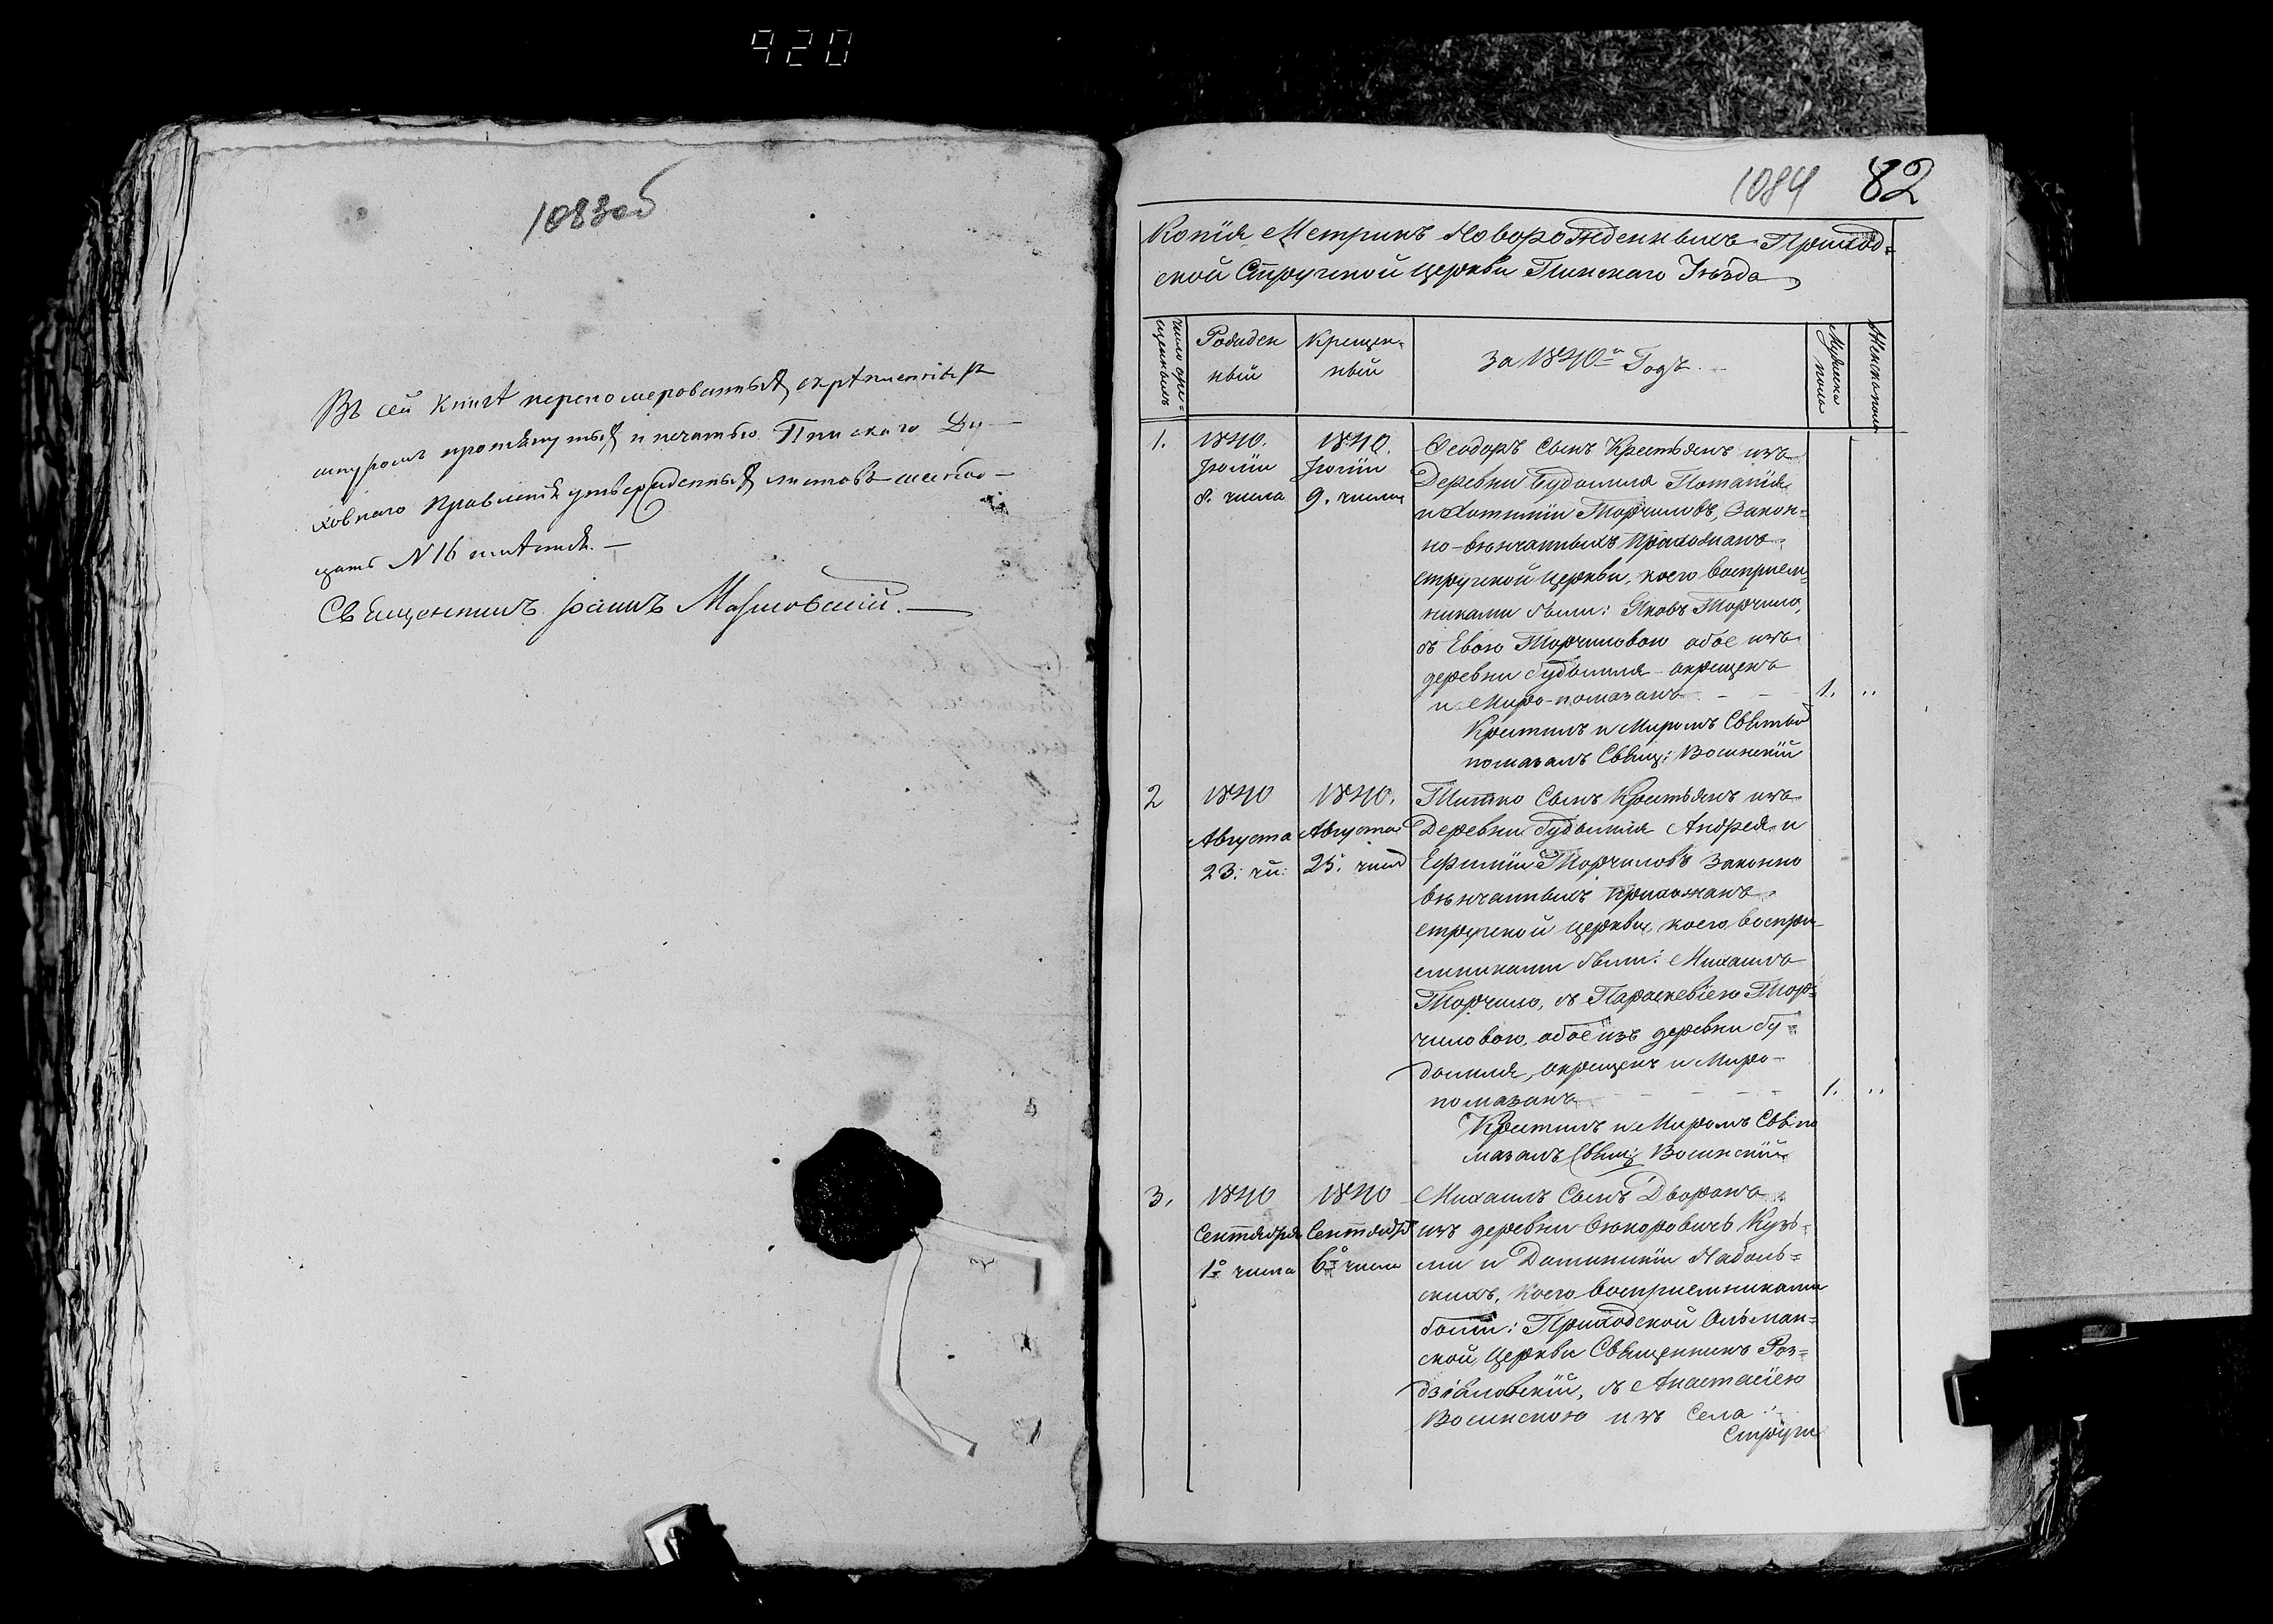 920
1083об
Въ сей Книгѣ переномерованныхъ, скрѣпленныхъ
шнуромъ протянутыхъ и печатью Пинскаго Ду-
ховнаго Правленія утвержденныхъ листовъ шестнад-
цать N 16 листовъ. —
Священникъ Іоаннъ Мас[...]овскій. —
1084 82
Копія Метрикъ Новорожденныхъ Приход=
ской Стружской Церкви Пинскаго Уѣзда
число кре=
щенныхъ
Рожден
ный
Крещен=
ный
за 1840й Годъ.
Мужска
пола
Женска пола
1.
1840.
Іюлія
8. числа
1840.
Іюлія
9. числа
Ѳеодоръ Сынъ Крестьянъ изъ
Деревни Будимля Потапія
и Хотинии Торчиловъ, Закон=
но-вѣнчанныхъ Прихожанъ
стружской Церкви, коего воспріем=
никами были: Яковъ Торчило,
съ Евою Торчиловою обое изъ
деревни Будимля окрещенъ
и Миро-помазанъ - -
1. ..
Крестилъ и Миромъ Святымъ
помазалъ Свящ: Волинскій
2
1840
Августа
23. чи:
1840.
Августа
25. числа
Титко Сынъ Крестьянъ изъ
Деревни Будимля Андрея и
Ефиміи Торчиловъ Законно
вѣнчанныхъ прихожанъ
стружской Церкви, коего воспри
емниками были: Михаилъ
Торчило, съ Параскевіею Тор=
чиловою, обое изъ деревни Бу=
димля, окрещенъ и Миро-
помазанъ - - - -
1. ..
Крестилъ и Миромъ Свв: по
мазалъ Свящ: Волинскій
3.
1840
Сентября
1о числа
1840
Сентября
6о числа
Михаилъ Сынъ Дворянъ
изъ деревни Ѳюкоровичъ Кузь=
мы и Доминикіи Наболь=
скихъ, коего воспріемниками
были: Приходской Ольман=
ской Церкви Священникъ Роз=
дзяловскій, съ Анастасіею
Волинскою изъ Села
Струги